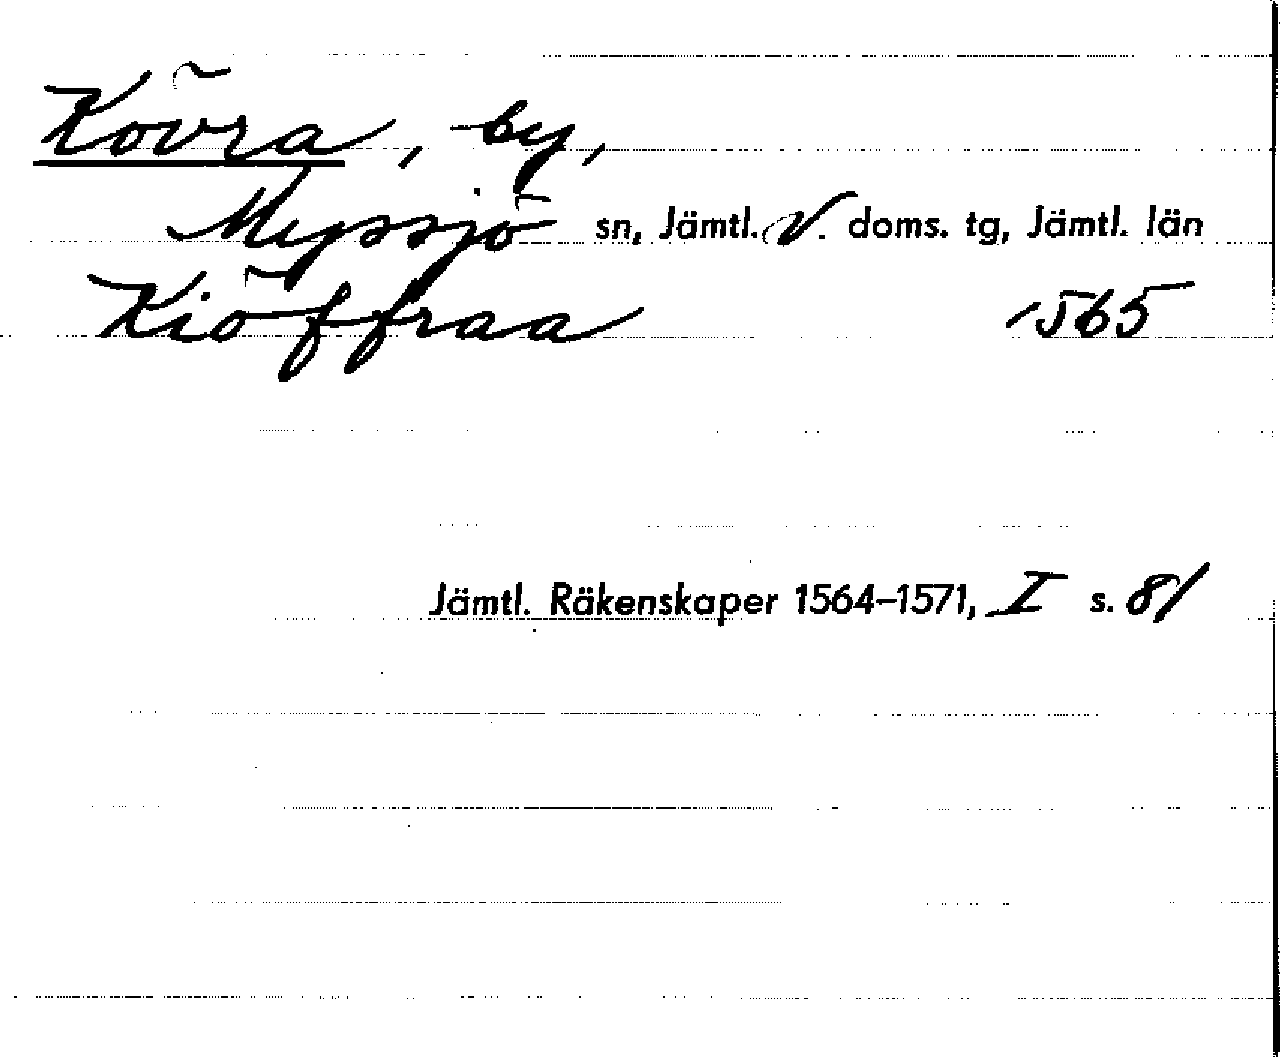 Kövra, by,
Myssjö sn, Jämtl. V. doms. tg, Jämtl. län
Kiöffraa 1565
Jämtl. Räkenskaper 1564–1571, I s. 81